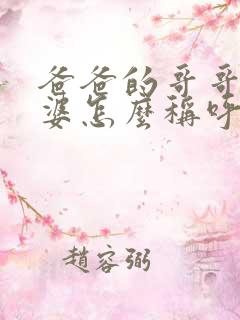 爸爸的哥哥
婆怎麼稱呼
趙容弼